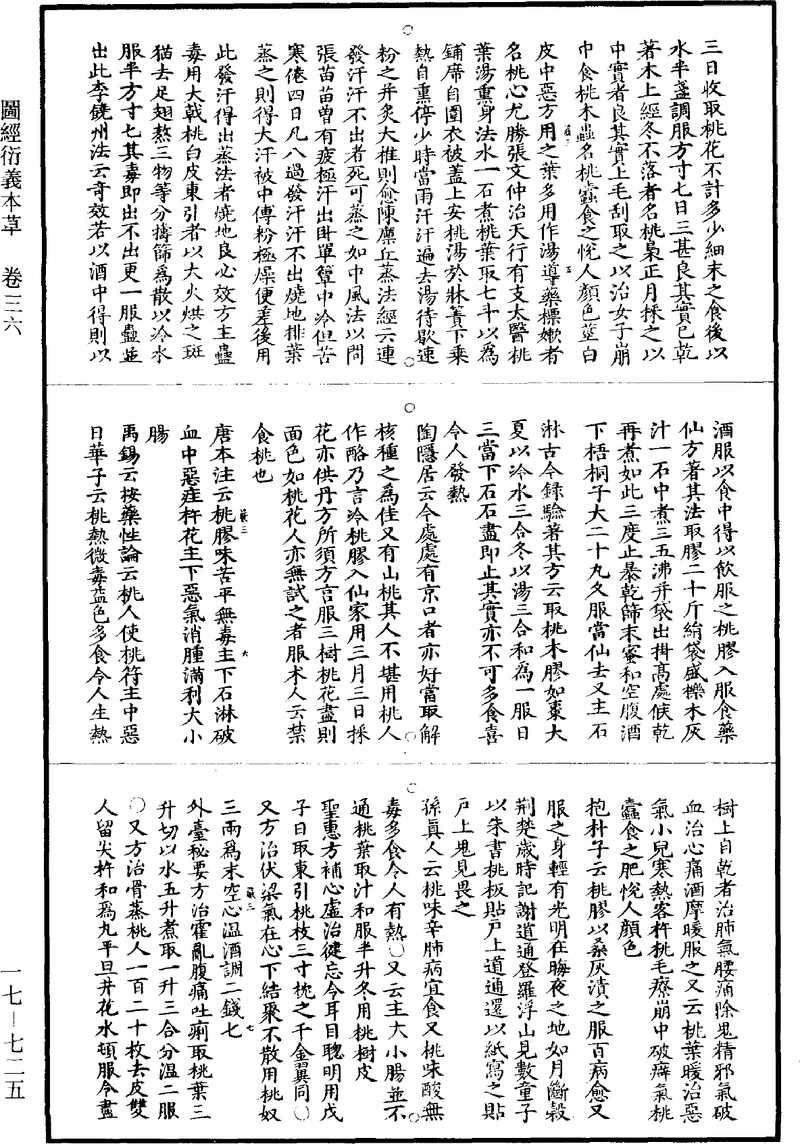 圖經衍義本草　卷三六
一七—七二五
三日收取桃花不計多少細末之食後以
水半盞調服方寸七日三甚良其實已乾
著木上經冬不落者名桃梟正月採之以
中實者良其實上毛刮取之以治女子崩
中食桃木蟲名桃蠹食之悅人顏色莖白
皮中惡方用之葉多用作湯導藥標嫰者
名桃心尤勝張文仲治天行有支太醫桃
葉湯熏身法水一石煮桃葉取七斗以為
鋪席自圍衣被蓋上安桃湯於牀簀下乗
熱自熏停少時當雨汗汗遍去湯待歇速
粉之并炙大椎則愈陳廩丘蒸法經云連
發汗汗不出者死可蒸之如中風法以問
張苗苗曾有疲極汗出卧單簟中冷但苦
寒倦四日凡八過發汗汗不出燒地排葉
蒸之則得大汗被中傅粉極燥便差後用
此發汗得出蒸法者燒地良心效方主蠱
毒用大戟桃白皮東引者以大火烘之斑
猫去足翅熬三物等分擣篩為散以冷水
服半方寸七其毒即出不出更一服蠱並
出此李饒州法云奇效若以酒中得則以
酒服以食中得以飲服之桃膠入服食藥
仙方著其法取膠二十斤絹袋盛櫟木灰
汁一石中煮三五沸并袋出掛高處候乾
再煮如此三度止暴乾篩末蜜和空腹酒
下梧桐子大二十丸久服當仙去又主石
淋古今錄驗著其方云取桃木膠如棗大
夏以冷水三合冬以湯三合和為一服日
三當下石石盡即止其實亦不可多食喜
令人發熱
陶隱居云今處處有京口者亦好當取解
核種之為佳又有山桃其人不堪用桃人
作酪乃言冷桃膠入仙家用三月三日採
花亦供丹方所須方言服三樹桃花盡則
面色如桃花人亦無試之者服术人云禁
食桃也
唐本注云桃膠味苦平無毒主下石淋破
血中惡疰杵花主下惡氣消腫滿利大小
腸
禹錫云按藥性論云桃人使桃符主中惡
日華子云桃熱微毒益色多食令人生熱
樹上自乾者治肺氣腰痛除鬼精邪氣破
血治心痛酒摩暖服之又云桃葉暖治惡
氣小兒寒熱客杵桃毛療崩中破癖氣桃
蠹食之肥悅人顏色
抱朴子云桃膠以桑灰漬之服百病愈又
服之身輕有光明在晦夜之地如月斷穀
荆楚歳時記謝道通登羅浮山見數童子
以朱書桃板貼戸上道通還以紙寫之貼
戸上鬼見畏之
孫真人云桃味辛肺病宜食又桃味酸無
毒多食令人有熱〇又云主大小腸並不
通桃葉取汁和服半升冬用桃樹皮
聖惠方補心虛治健忘令耳目聰明用戊
子日取東引桃枝三寸枕之千金翼同〇
又方治伏梁氣在心下結聚不散用桃奴
三兩為末空心溫酒調二錢七
外臺秘要方治霍亂腹痛吐痢取桃葉三
升切以水五升煮取一升三合分溫二服
〇又方治骨蒸桃人一百二十枚去皮雙
人留尖杵和為丸平旦井花水頓服令盡